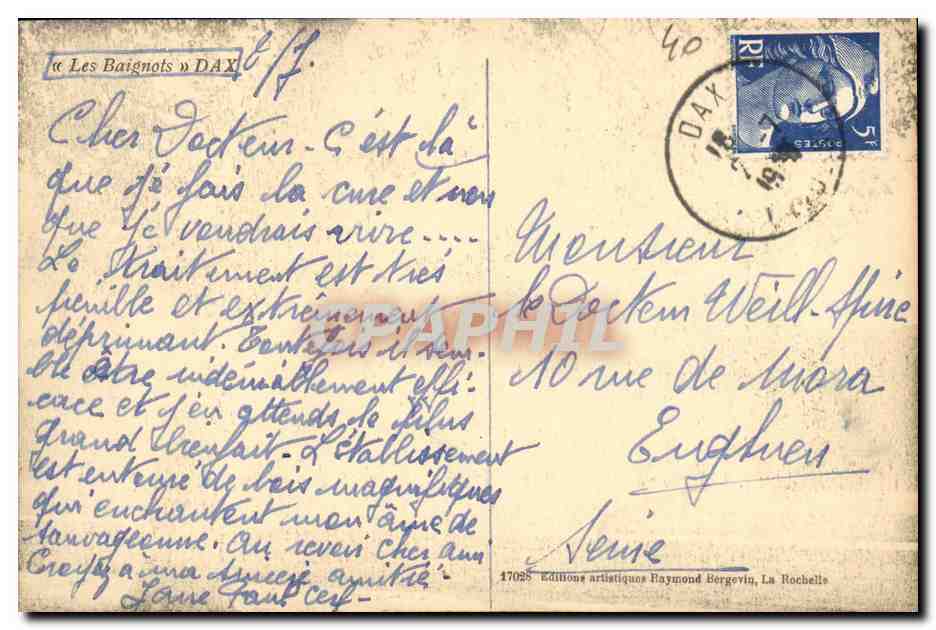 « Les Baignots » DAX
2/7.
Cher Docteur - C'est là
que je fais la cure et non
que je voudrais vivre ....
Le traitement est très
pénible et extrêmement
déprimant. Toutefois il sem-
ble être indéniablement effi-
cace et j'en attends le plus
grand bienfait - L'établissement
est entouré de bois magnifiques
qui enchantent mon âme de
sauvageonne. Au revoir cher ami
Croyez à ma sincère amitié -
40
RF
5F
POSTES
DAX
18
2-7
19
Monsieur
le Docteur Weill-Spire
10 rue de Mora
Enghien
Seine
CPAPHIL
17028 Editions artistiques Raymond Bergevin, La Rochelle